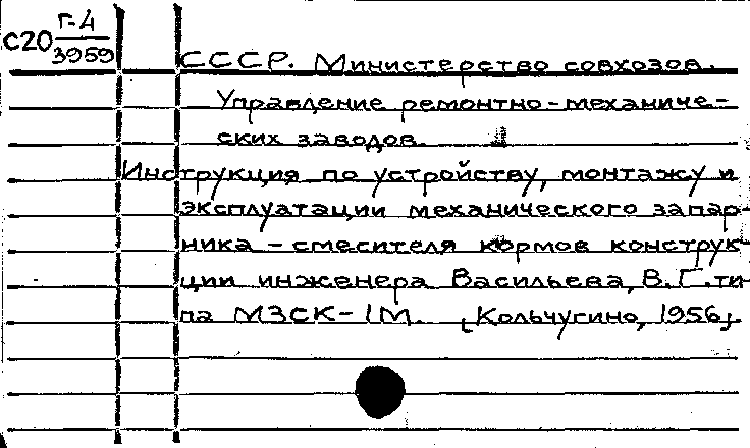 Г-4
С20
3959
СССР. Министерство совхозов.
Управление ремонтно-механиче-
ских заводов.
Инструкция по устройству, монтажу и
эксплуатации механического запар-
ника - смесителя кормов конструк-
ции инженера Васильева, В.Г. ти-
па МЗСК-1М. [Кольчугино, 1956].